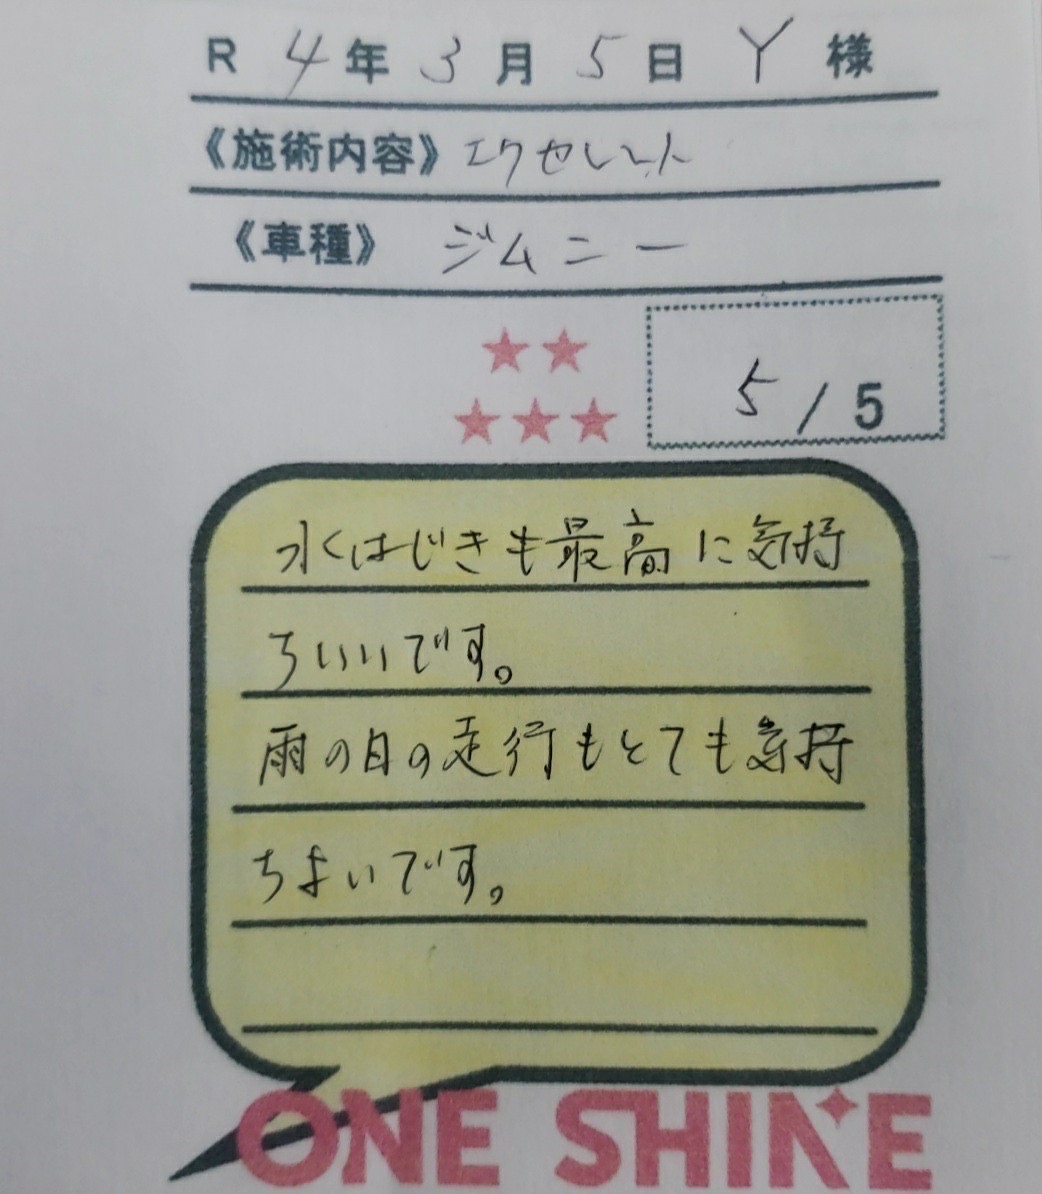 R 4年 3月 5日 Y 様
《施術内容》エクセレント
《車種》ジムニー
5/5
水はじきも最高に気持
ちいいです。
雨の日の走行もとても気持
ちよいです。
ONE SHINE